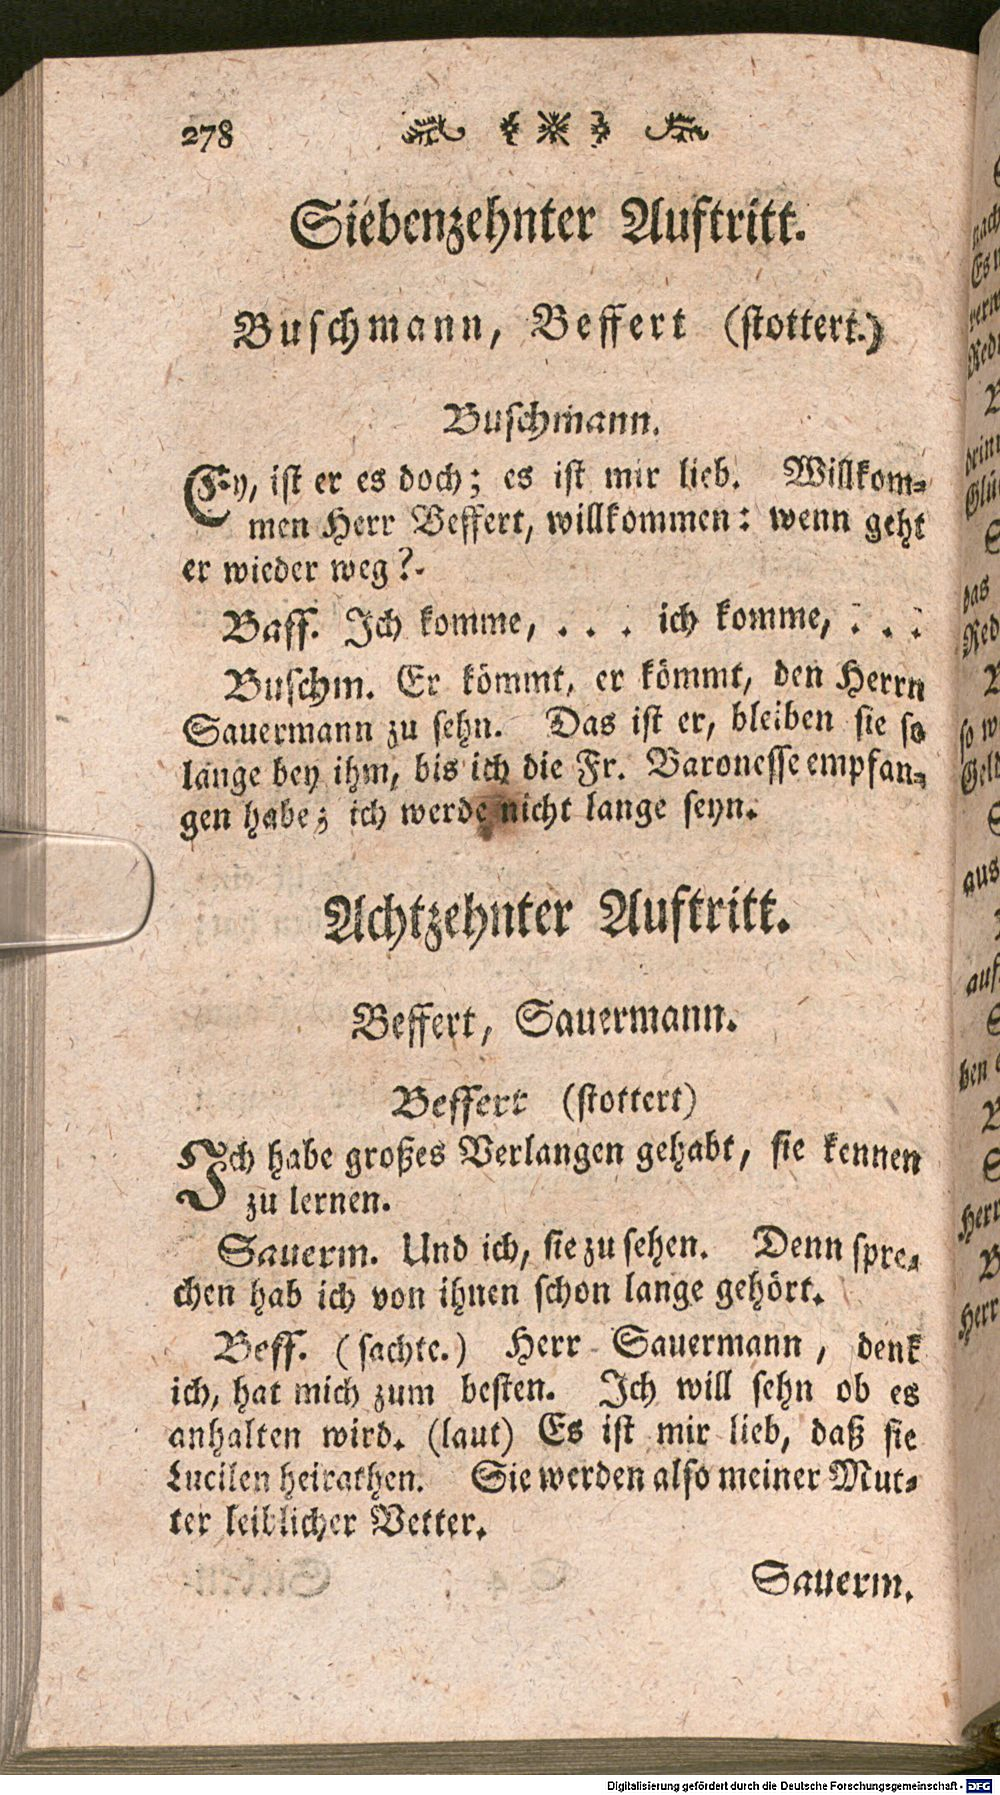 278
Siebenzehnter Auftritt.
Buschmann, Beffert (stottert.)
Buschmann.
Ey, ist er es doch; es ist mir lieb. Willkom-
men Herr Beffert, willkommen: wenn geht
er wieder weg?
Baff. Ich komme, . . . ich komme, . . .
Buschm. Er kömmt, er kömmt, den Herrn
Sauermann zu sehn. Das ist er, bleiben sie so
lange bey ihm, bis ich die Fr. Baronesse empfan-
gen habe; ich werde nicht lange seyn.
Achtzehnter Auftritt.
Beffert, Sauermann.
Beffert (stottert)
Ich habe großes Verlangen gehabt, sie kennen
zu lernen.
Sauerm. Und ich, sie zu sehen. Denn spre-
chen hab ich von ihnen schon lange gehört.
Beff. (sachte.) Herr Sauermann, denk
ich, hat mich zum besten. Ich will sehn ob es
anhalten wird. (laut) Es ist mir lieb, daß sie
Lucilen heirathen. Sie werden also meiner Mut-
ter leiblicher Vetter.
Sauerm.
Digitalisierung gefördert durch die Deutsche Forschungsgemeinschaft - DFG